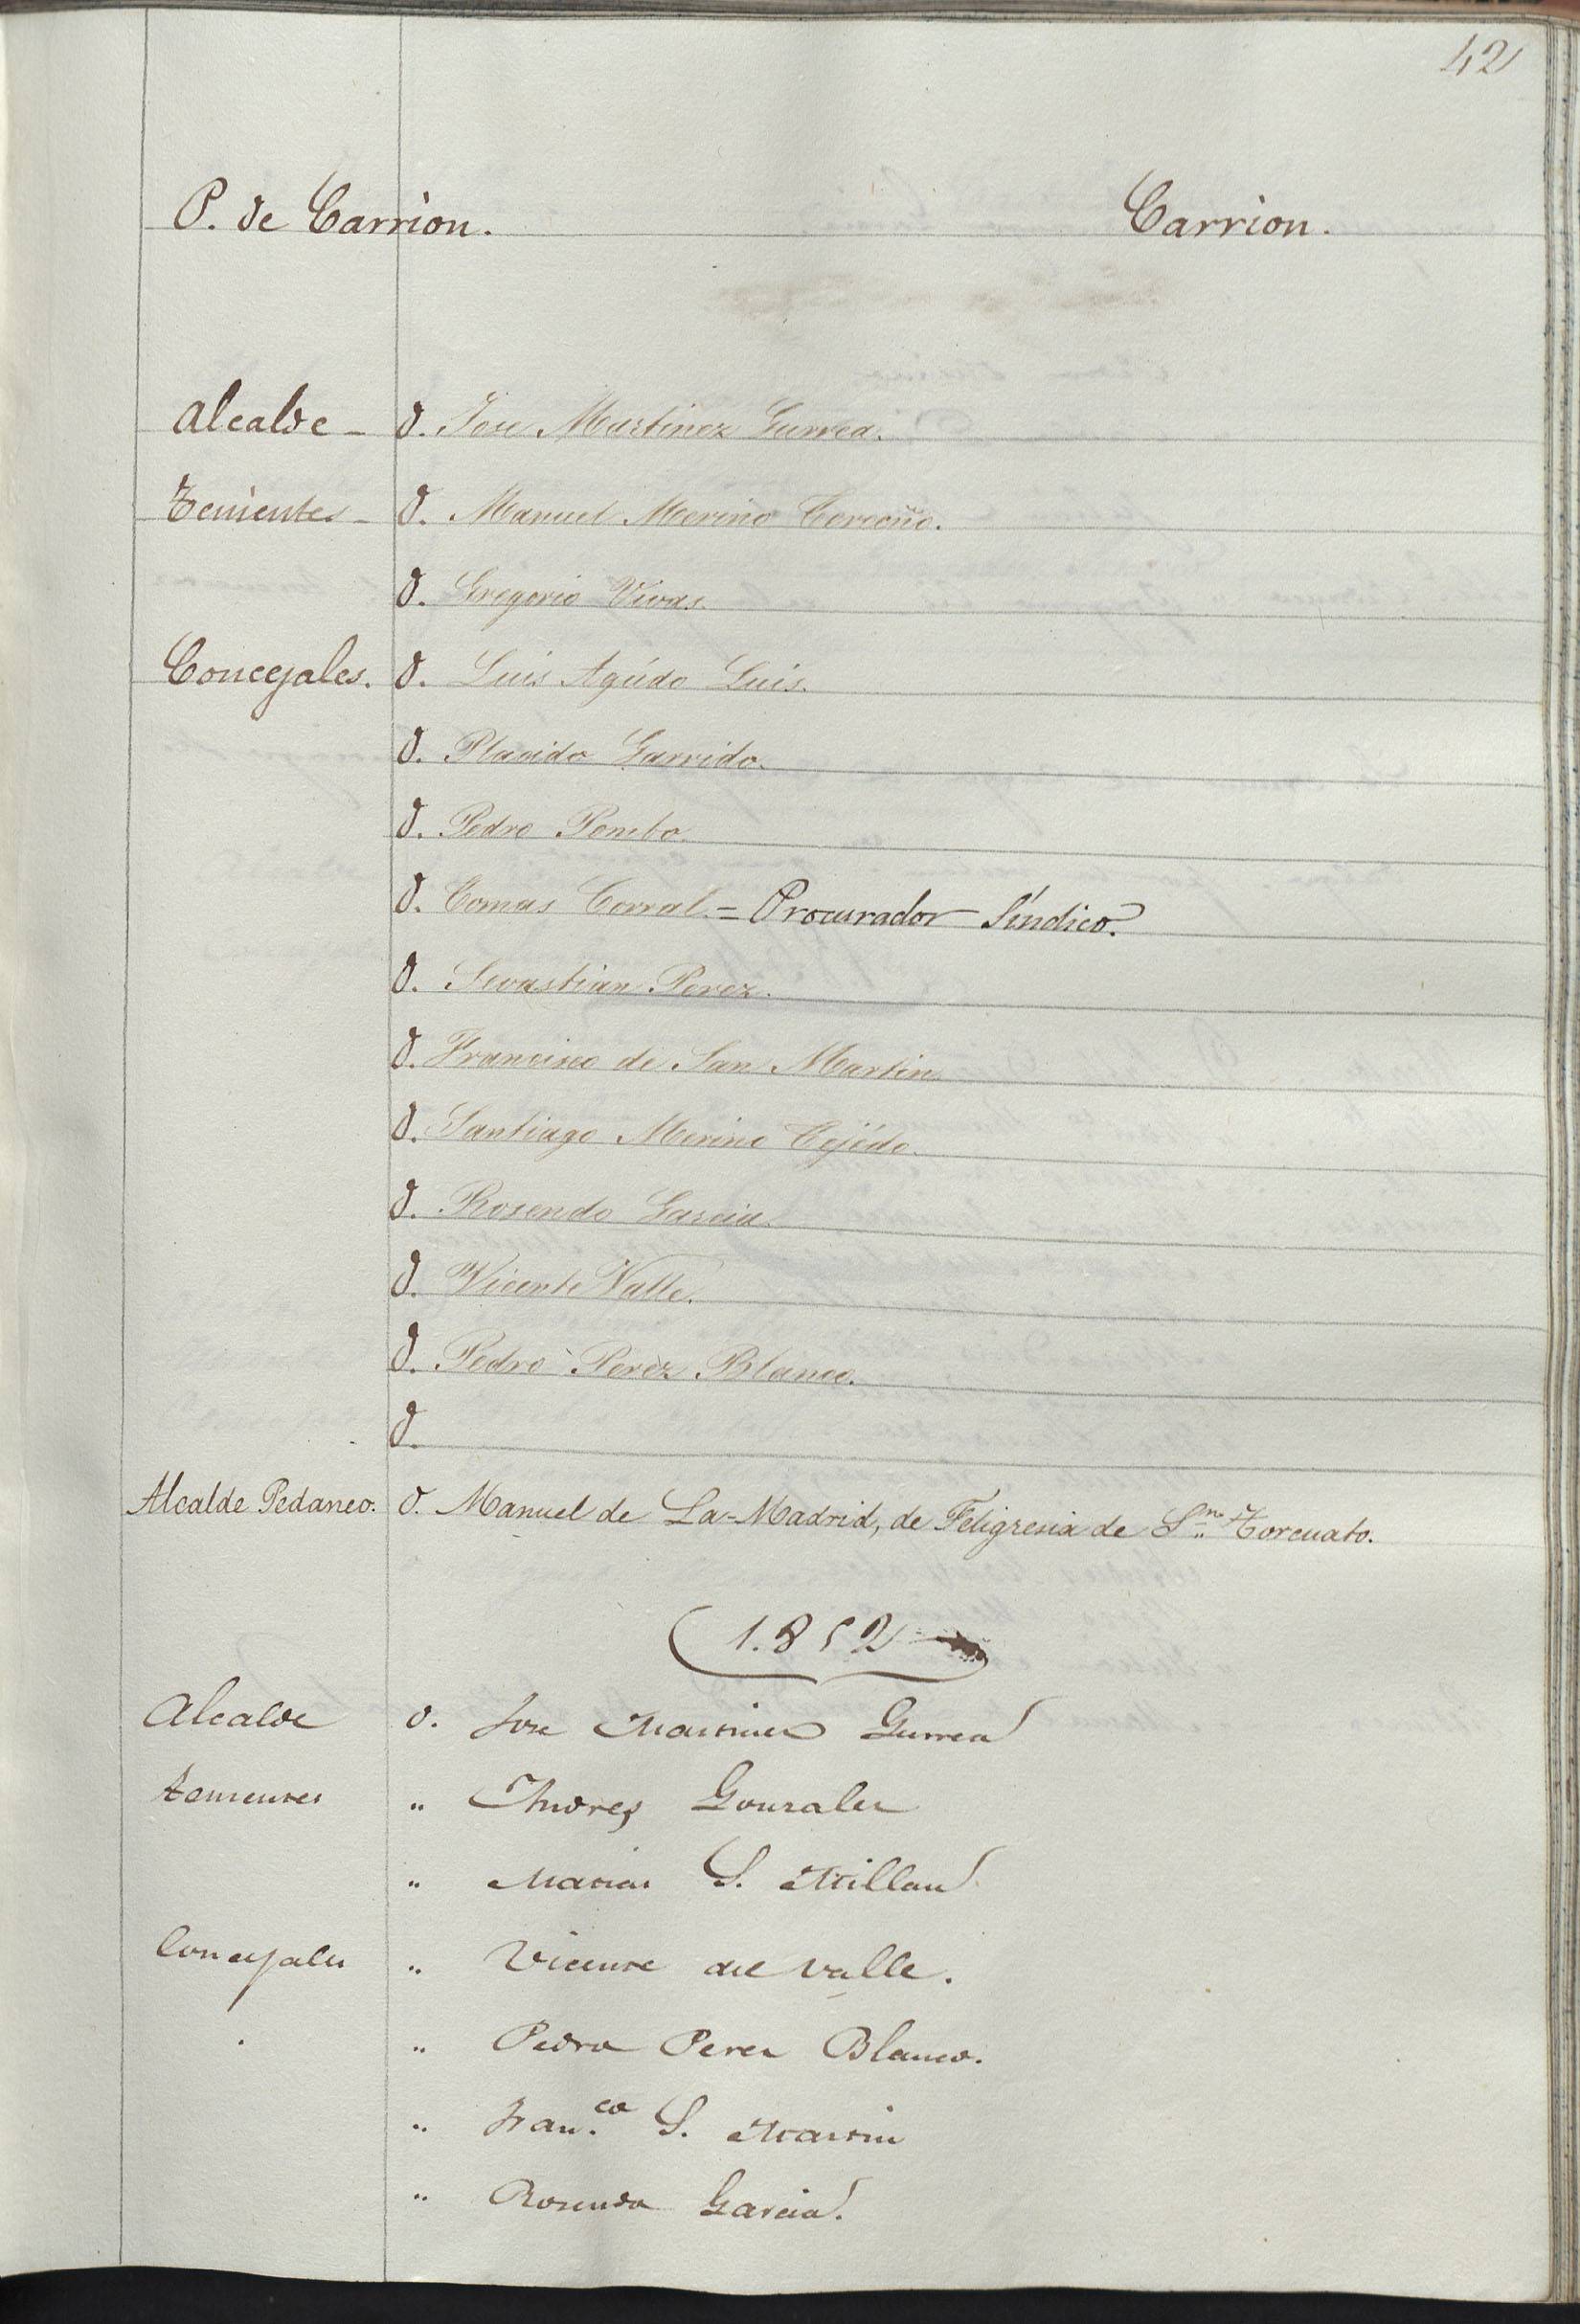 42
P. de Carrion. Carrion.
Alcalde - D. Jose Martinez Gurrea.
Tenientes - D. Manuel Merino
D. Gregorio Vivas.
Concejales. D. Luis Agúdo Luis.
D. Placido Garrido.
D. Pedro Pombo.
D. Tomas Corral. = Procurador Síndico.
D. Sevastian Perez.
D. Francisco de San Martin
D. Santiago Merino Tejédo.
D. Rosendo Garcia.
D. Vicente Valle.
D. Pedro Perez Blanco.
D.
Alcalde Pedaneo. D. Manuel de La-Madrid, de Feligresia de S.n Torcuato.
1.852
Alcalde D. Jose Martinez Gurrea
tenientes " Andres Gonzalez
" Matias S. Millan
Concejales " Vicente del Valle.
" Pedro Perez Blanco.
" Fran.co S. Martin
" Rosendo Garcia.